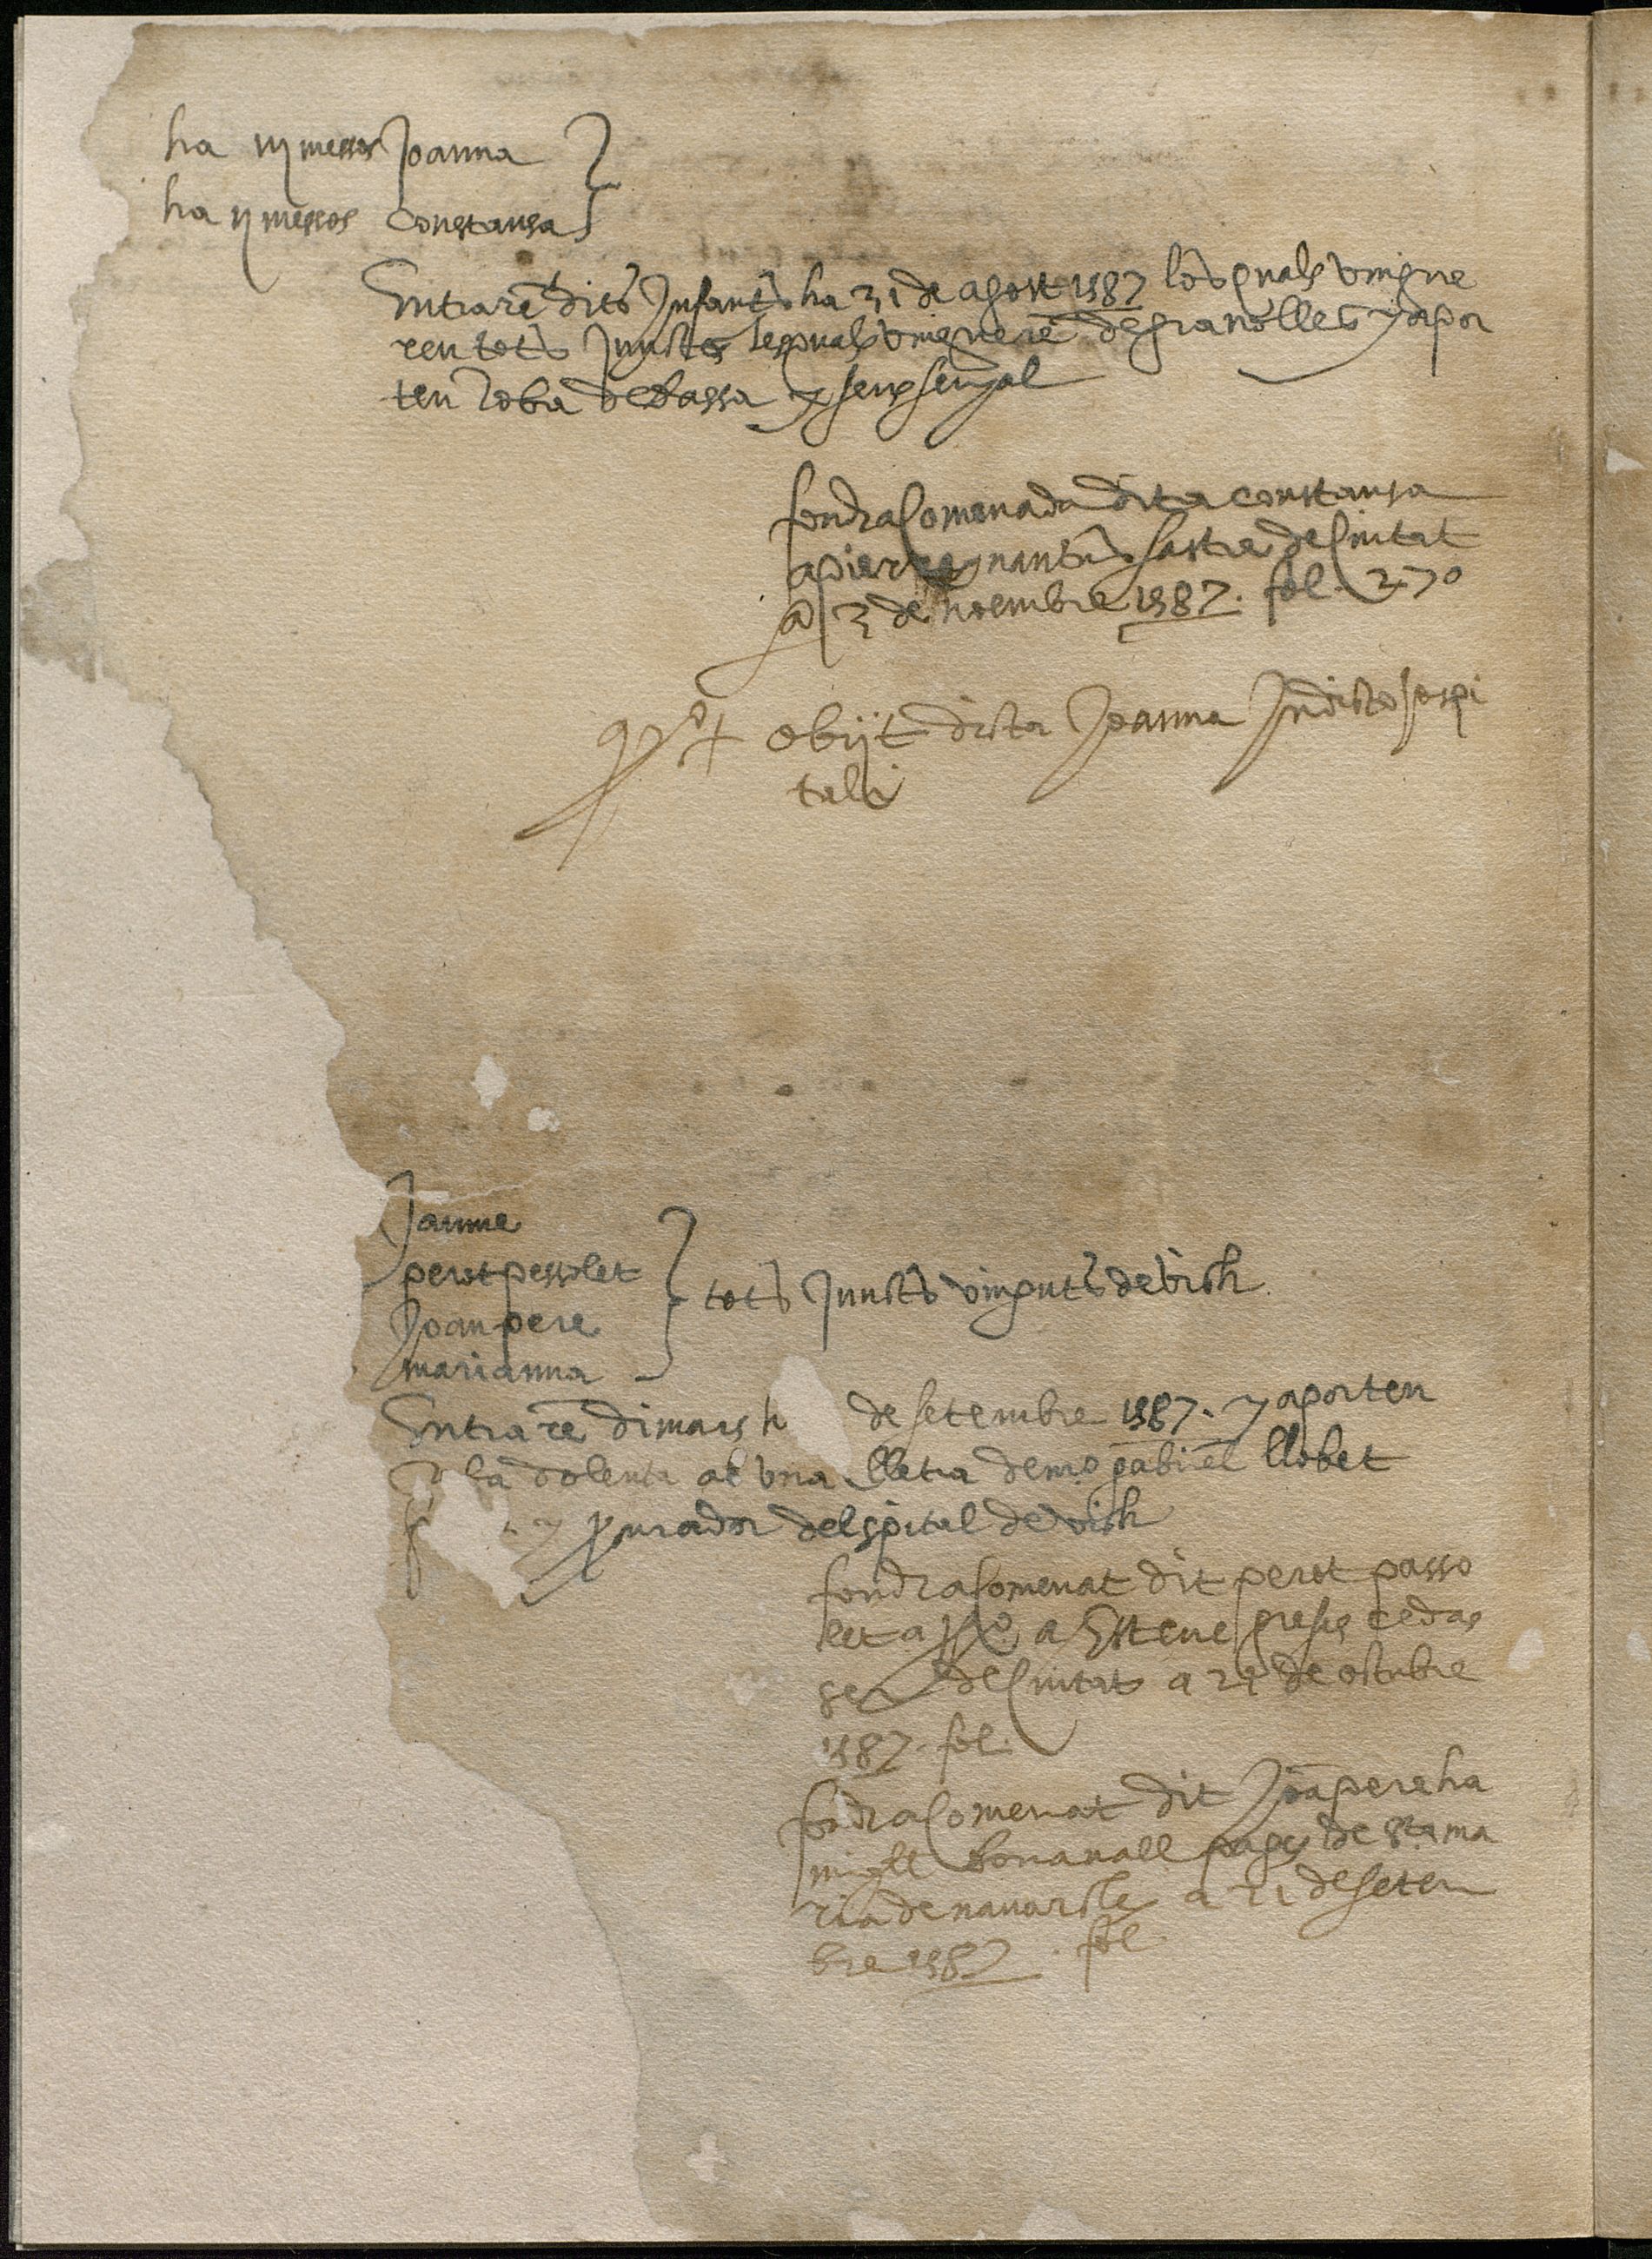 ha iij messos Joanna
ha ij messos Constansa
Entrarē dits Infants ha 31 de agost 1587 los quals vingue
ren tots Junts les quals vinguerē de granolles y apor
ten roba de bassa y sens senyal
fon dracomenada dita constansa
a pierre nantu sastre de ciutat
a 3 de noembre 1587. fol. 270
obijt dicta Joanna In dicto hospi
tali
Jaume
perot pessolet
Joan pere
marianna
tots Juncts vinguts de vich
Entrarē dimars h de setembre 1587. y aporten
dolenta ab vna lletra de mº gabiel llobet
y procurador del spital de vich
fon dracomenat dit perot passo
let a a Esteue preses cedas
ser de ciutat a 21 de octubre
1587. fol.
fon dracomenat dit Joā pere ha
migll bonanall pages de sta ma
ria de nauarcles a 21 de setem
bre 1587. fol